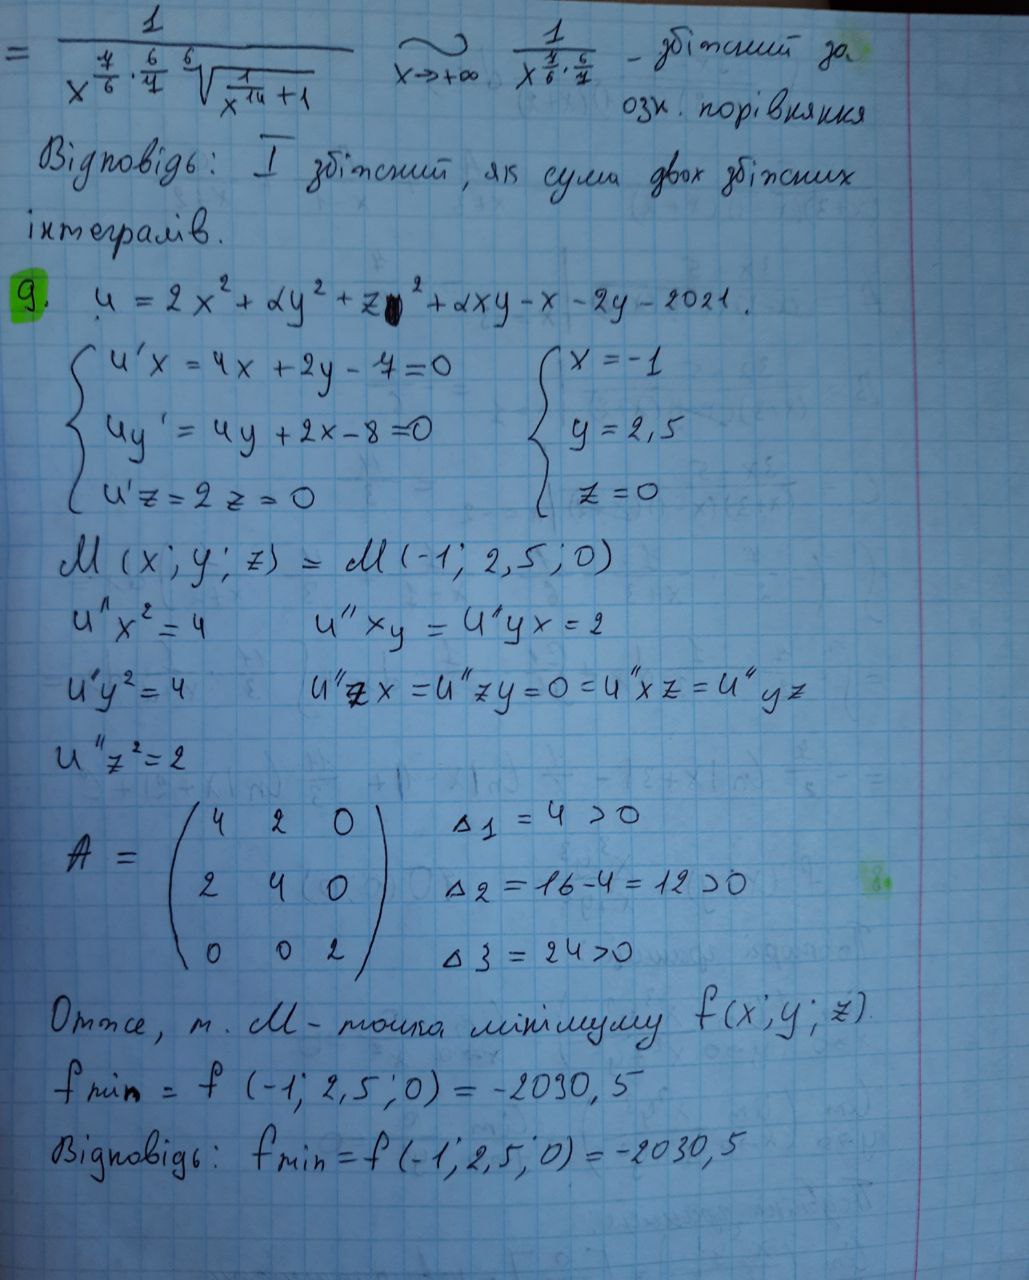 = 1 / (x^(7/6 · 6/7) ⁶√(1/x^14 + 1)) ~ x→+∞ 1 / x^(7/6 · 6/7) - збіжний за
озн. порівняння
Відповідь: I збіжний, як сума двох збіжних
інтегралів.
9. u = 2x² + 2y² + z² + 2xy - x - 2y - 2021.
u'x = 4x + 2y - 7 = 0 x = -1
uy' = 4y + 2x - 8 = 0 y = 2,5
u'z = 2z = 0 z = 0
M (x; y; z) = M (-1; 2,5; 0)
u''x² = 4 u''xy = u''yx = 2
u'y² = 4 u''zx = u''zy = 0 = u''xz = u''yz
u''z² = 2
A = ( 4 2 0 Δ1 = 4 > 0
2 4 0 Δ2 = 16 - 4 = 12 > 0
0 0 2 ) Δ3 = 24 > 0
Отже, т. M - точка мінімуму f(x; y; z)
fmin = f (-1; 2,5; 0) = -2030,5
Відповідь: fmin = f (-1; 2,5; 0) = -2030,5